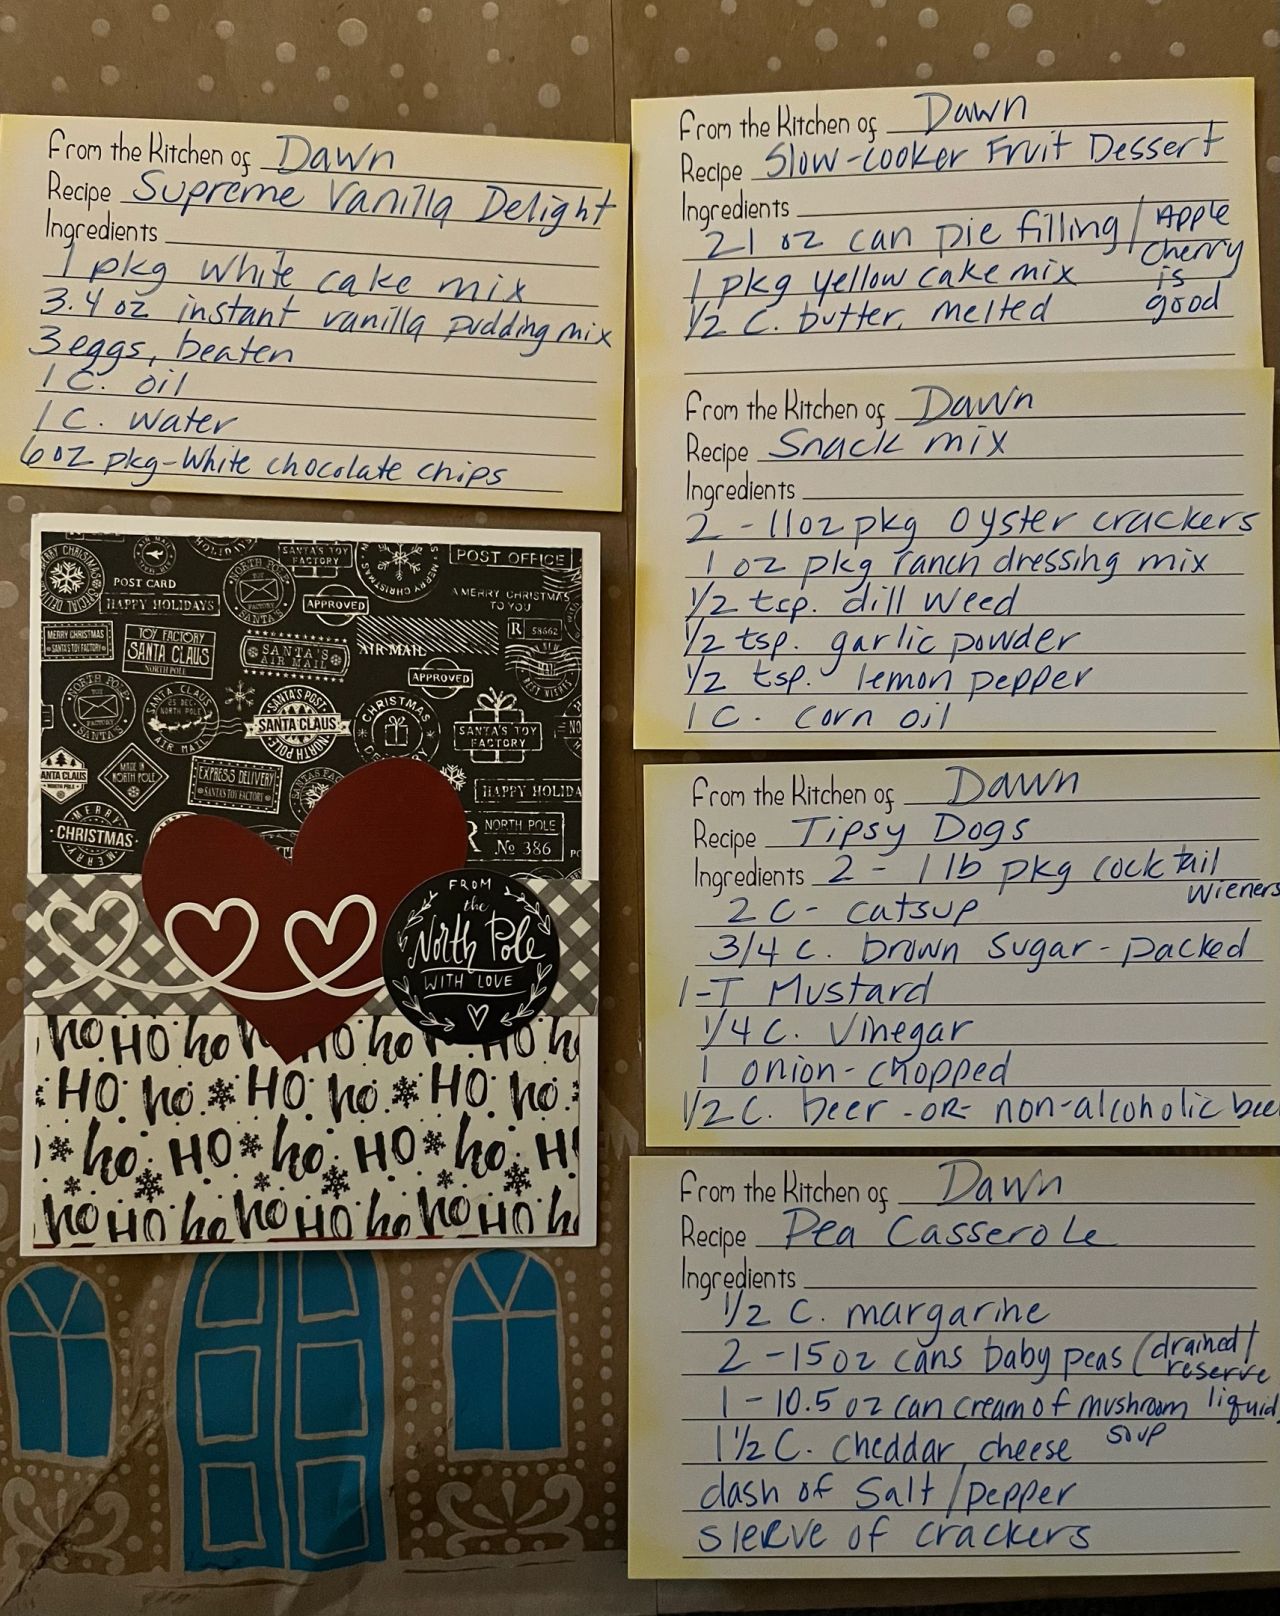 From the Kitchen of Dawn
Recipe Supreme Vanilla Delight
Ingredients
1 pkg white cake mix
3.4 oz instant vanilla pudding mix
3 eggs, beaten
1 C. oil
1 C. water
6 oz pkg-White chocolate chips
From the Kitchen of Dawn
Recipe Slow-cooker Fruit Dessert
Ingredients
21 oz can pie filling / Apple
Cherry
1 pkg yellow cake mix is
1/2 C. butter, melted good
From the Kitchen of Dawn
Recipe Snack mix
Ingredients
2 - 11oz pkg Oyster crackers
1 oz pkg ranch dressing mix
1/2 tsp. dill weed
1/2 tsp. garlic powder
1/2 tsp. lemon pepper
1 C. corn oil
From the Kitchen of Dawn
Recipe Tipsy Dogs
Ingredients 2 - 1 lb pkg cocktail
wieners
2 C- catsup
3/4 c. brown sugar-packed
1-T Mustard
1/4 C. Vinegar
1 onion-chopped
1/2 C. beer -OR- non-alcoholic beer
From the Kitchen of Dawn
Recipe Pea Casserole
Ingredients
1/2 C. margarine
2 -15 oz cans baby peas (drained/
reserve
1 - 10.5 oz can cream of mushroom liquid
soup
1 1/2 C. cheddar cheese
dash of Salt/pepper
sleeve of crackers
POST OFFICE
SANTA'S TOY
FACTORY
POST CARD
HAPPY HOLIDAYS
APPROVED
A MERRY CHRISTMAS
TO YOU
MERRY CHRISTMAS
SANTA'S TOY FACTORY
TOY FACTORY
SANTA CLAUS
NORTH POLE
SANTA'S
AIR MAIL
AIR MAIL
R 58662
APPROVED
NORTH POLE
SANTA'S
SANTA CLAUS
25 DEC.
NORTH POLE
AIR MAIL
SANTA'S POST
SANTA CLAUS
NORTH POLE
CHRISTMAS
SANTA'S TOY
FACTORY
SANTA CLAUS
NORTH POLE
MADE IN
NORTH POLE
EXPRESS DELIVERY
SANTA'S TOY FACTORY
HAPPY HOLIDA
MERRY
CHRISTMAS
MERRY
NORTH POLE
No 386
FROM
the
North Pole
WITH LOVE
ho HO ho HO ho HO ho
HO ho HO ho HO ho
ho HO ho HO ho H
ho HO ho ho HO ho ho HO h